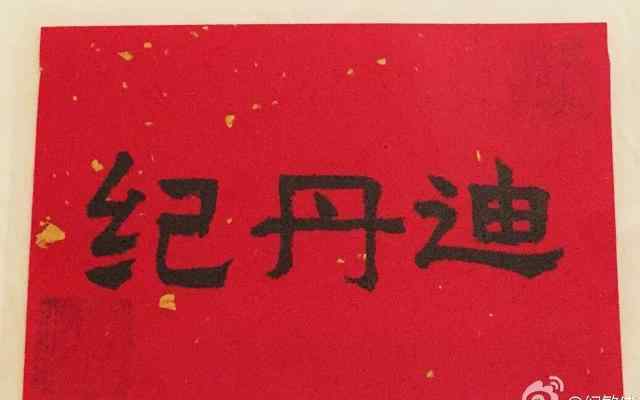 纪丹迪